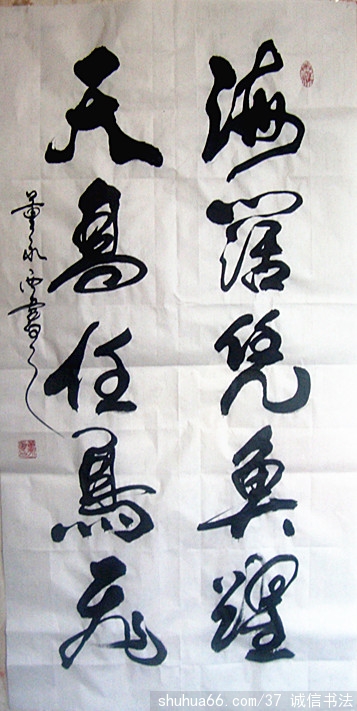 海阔凭鱼跃
天高任鸟飞
董永西书
shuhua66.com/37 诚信书法